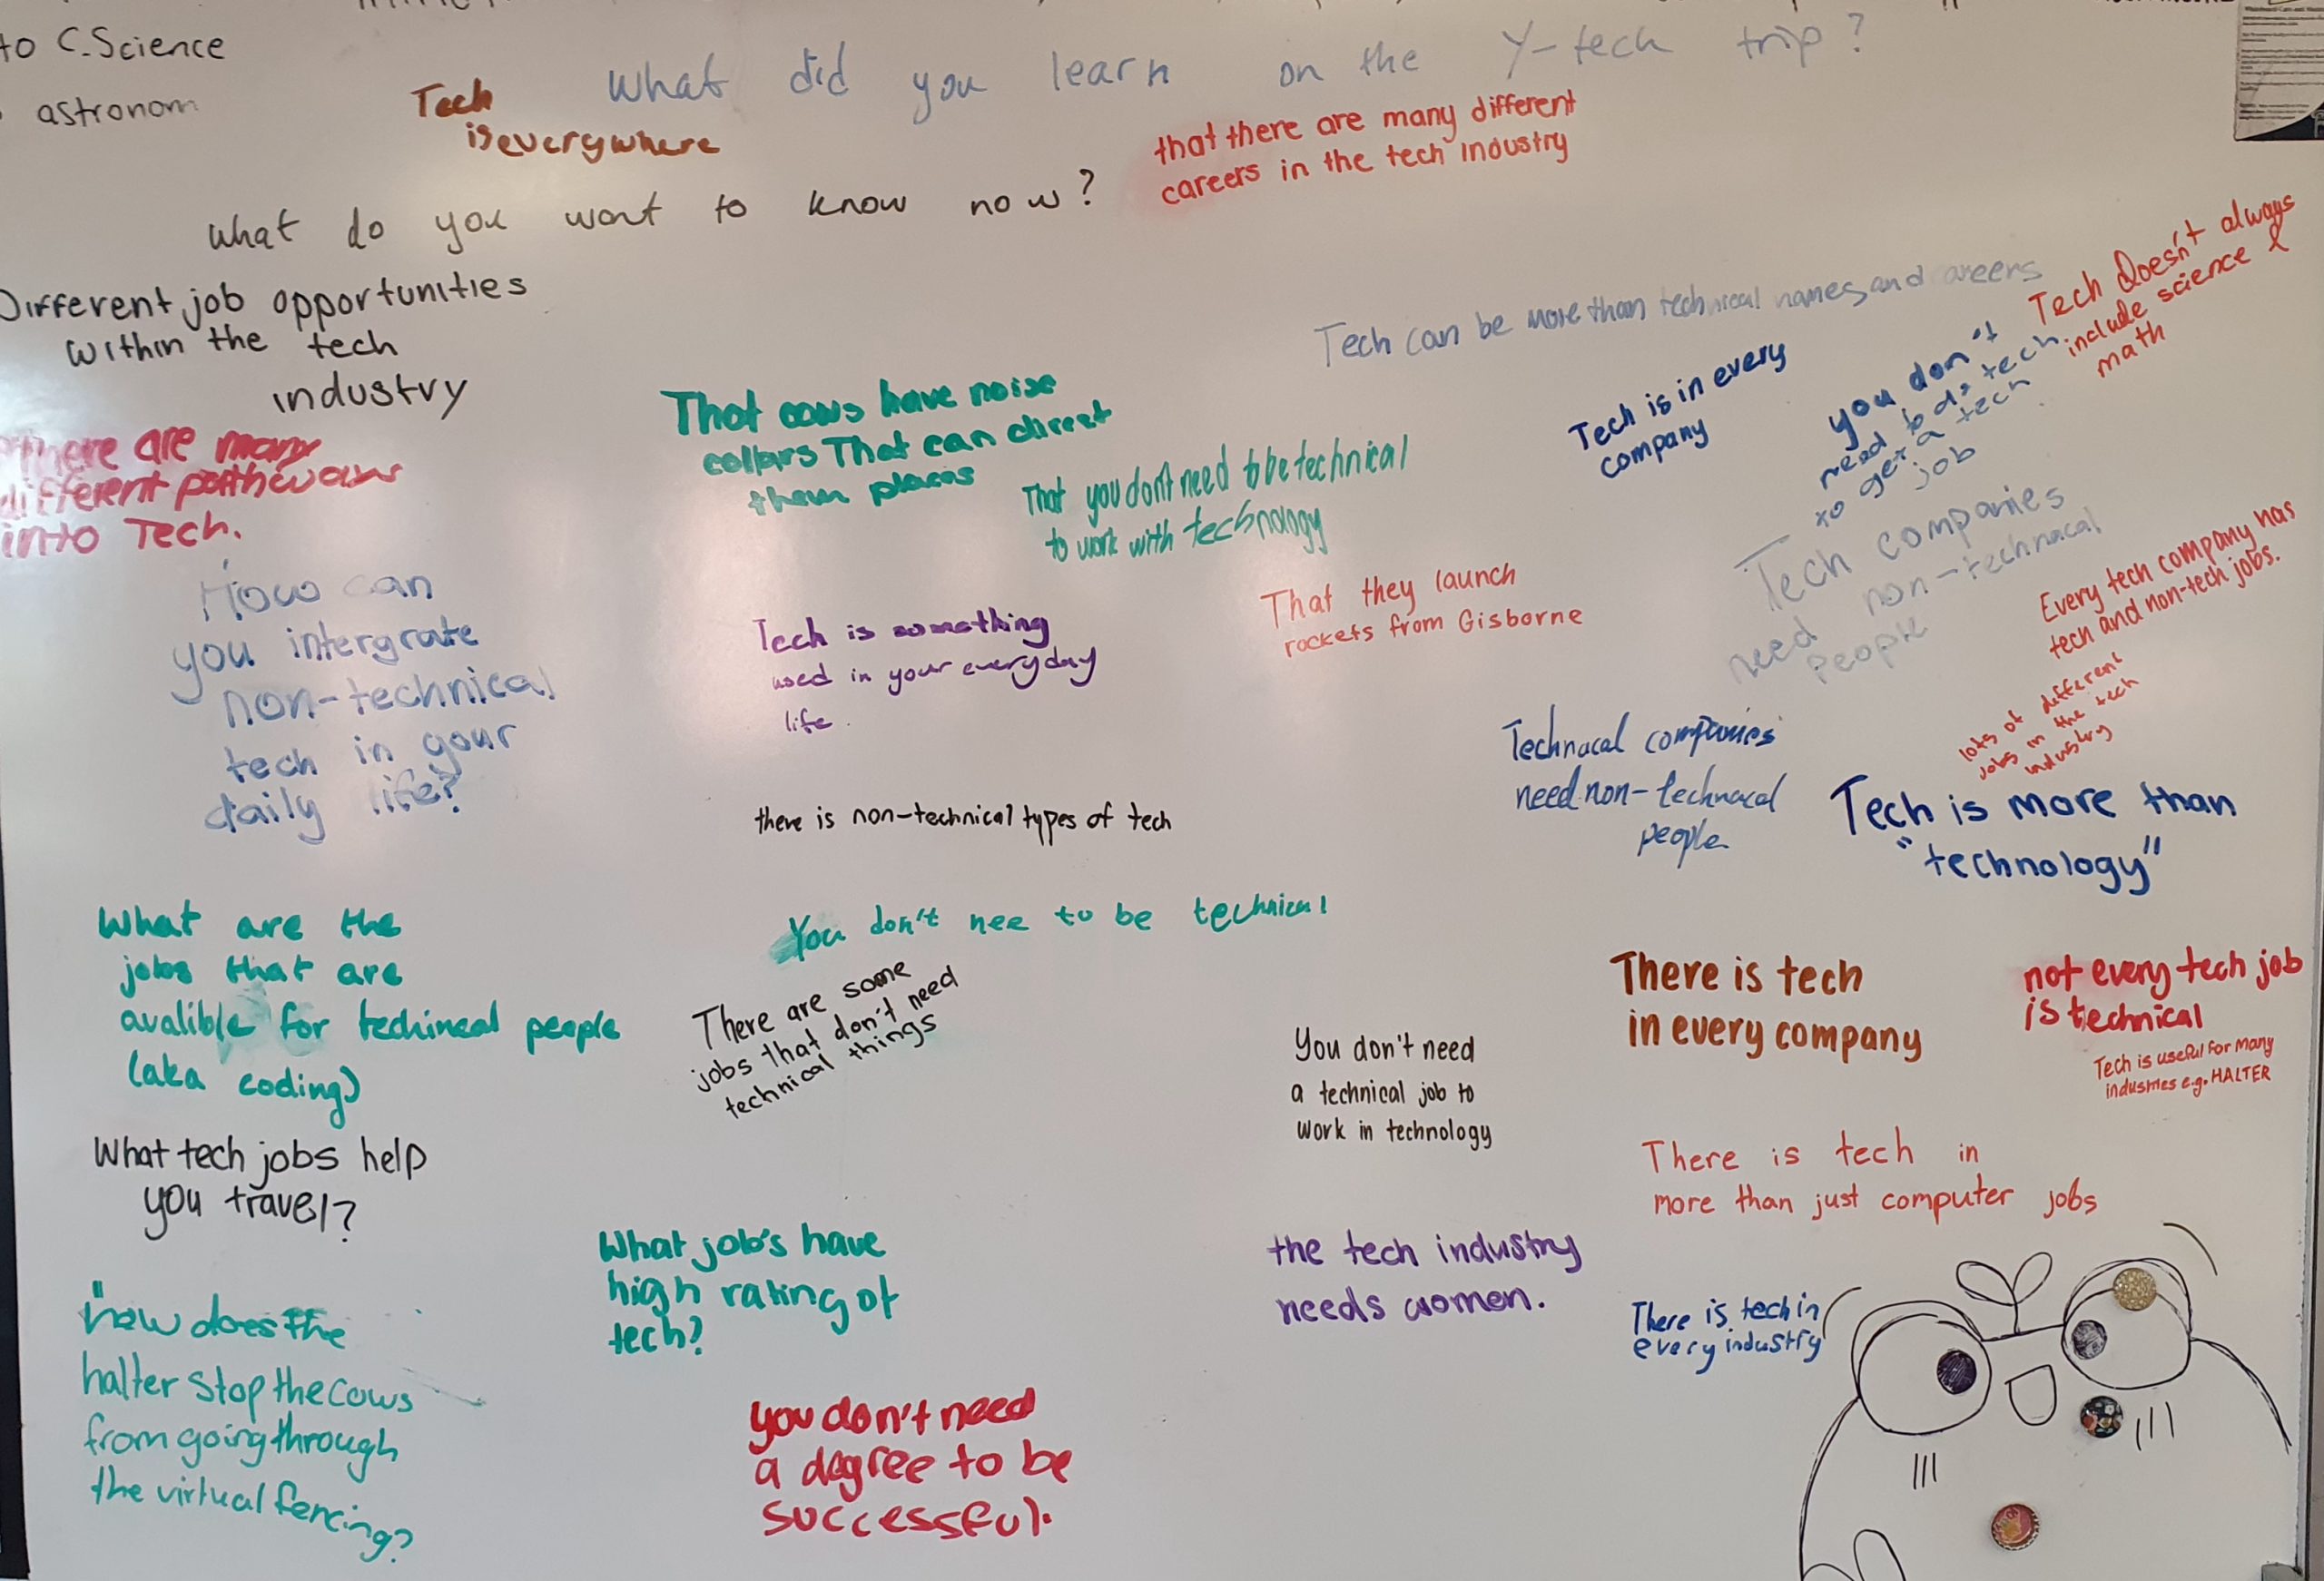 to C.Science
astronom
What did you learn on the Y-tech trip?
Tech
is everywhere
that there are many different
careers in the tech industry
What do you want to know now?
Different job opportunities
within the tech
industry
There are many
different pathways
into Tech.
How can
you intergrate
non-technical
tech in your
daily life?
What are the
jobs that are
avalible for techineal people
(aka coding)
What tech jobs help
you travel?
how does the
halter stop the cows
from going through
the virtual fencing?
That cows have noise
collars That can direct
them places
That you don't need to be technical
to work with technology
Tech is something
used in your everyday
life.
there is non-technical types of tech
You don't nee to be technical
There are some
jobs that don't need
technical things
What job's have
high rating of
tech?
you don't need
a degree to be
successful.
Tech can be more than technical names and careers
Tech is in every
company
you don't
need to do tech
to get a tech
job
Tech Doesn't always
include science &
math
That they launch
rockets from Gisborne
Tech companies
need non-technacal
People
Every tech company has
tech and non-tech jobs.
lots of different
jobs in the tech
industry
Technacal companies
need non-technacal
people
Tech is more than
"technology"
There is tech
in every company
not every tech job
is technical
Tech is useful for many
industries e.g. HALTER
You don't need
a technical job to
work in technology
There is tech in
more than just computer jobs
the tech industry
needs women.
There is tech in
every industry